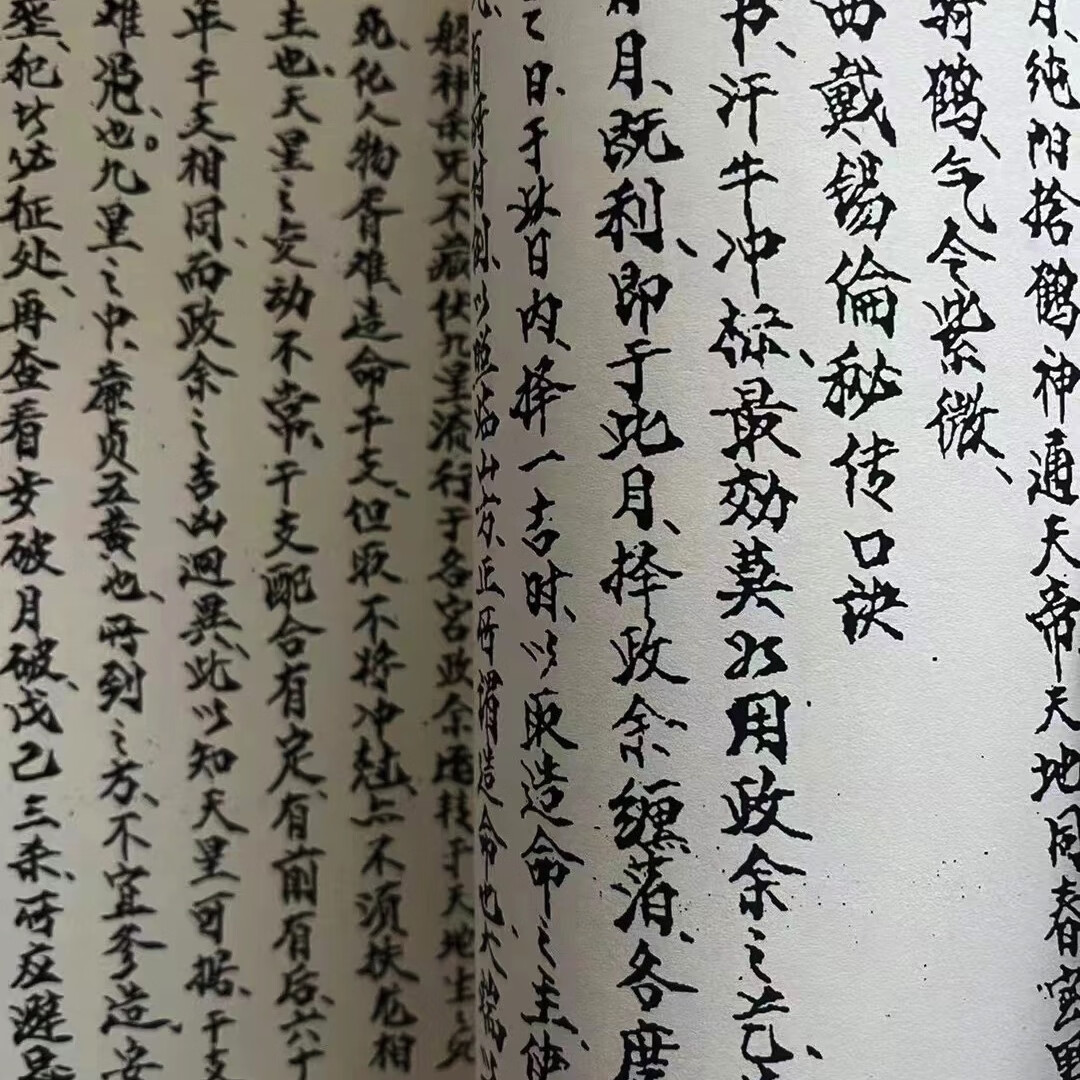 月、纯阳捨鹤神通天帝天地同春宝
骑鹤、气令紫微、
西戴锡倫秘传口诀
书、汗牛冲栋、最効莫如用政余之
月、既利、即于此月、择政余缠落、各度
之日、于此日内、择一吉时、以取造命之主、使
有时以照临山方、正所谓造命也、大
般神杀咒不藏伏九星流行于各宫政余
死、化人物胥难、造命干支、但取不将冲尅、亦不须扶龙相
主也、天星之变动不常、干支配合有定、有前有后、六十
年干支相同、而政余之吉凶迥異、此以知天星可据、干支
难凭也。九星之中、廉贞五黄也、所到之方、不宜参造、安
犯其必征处、再查看岁破月破、戊己三杀、所应避忌